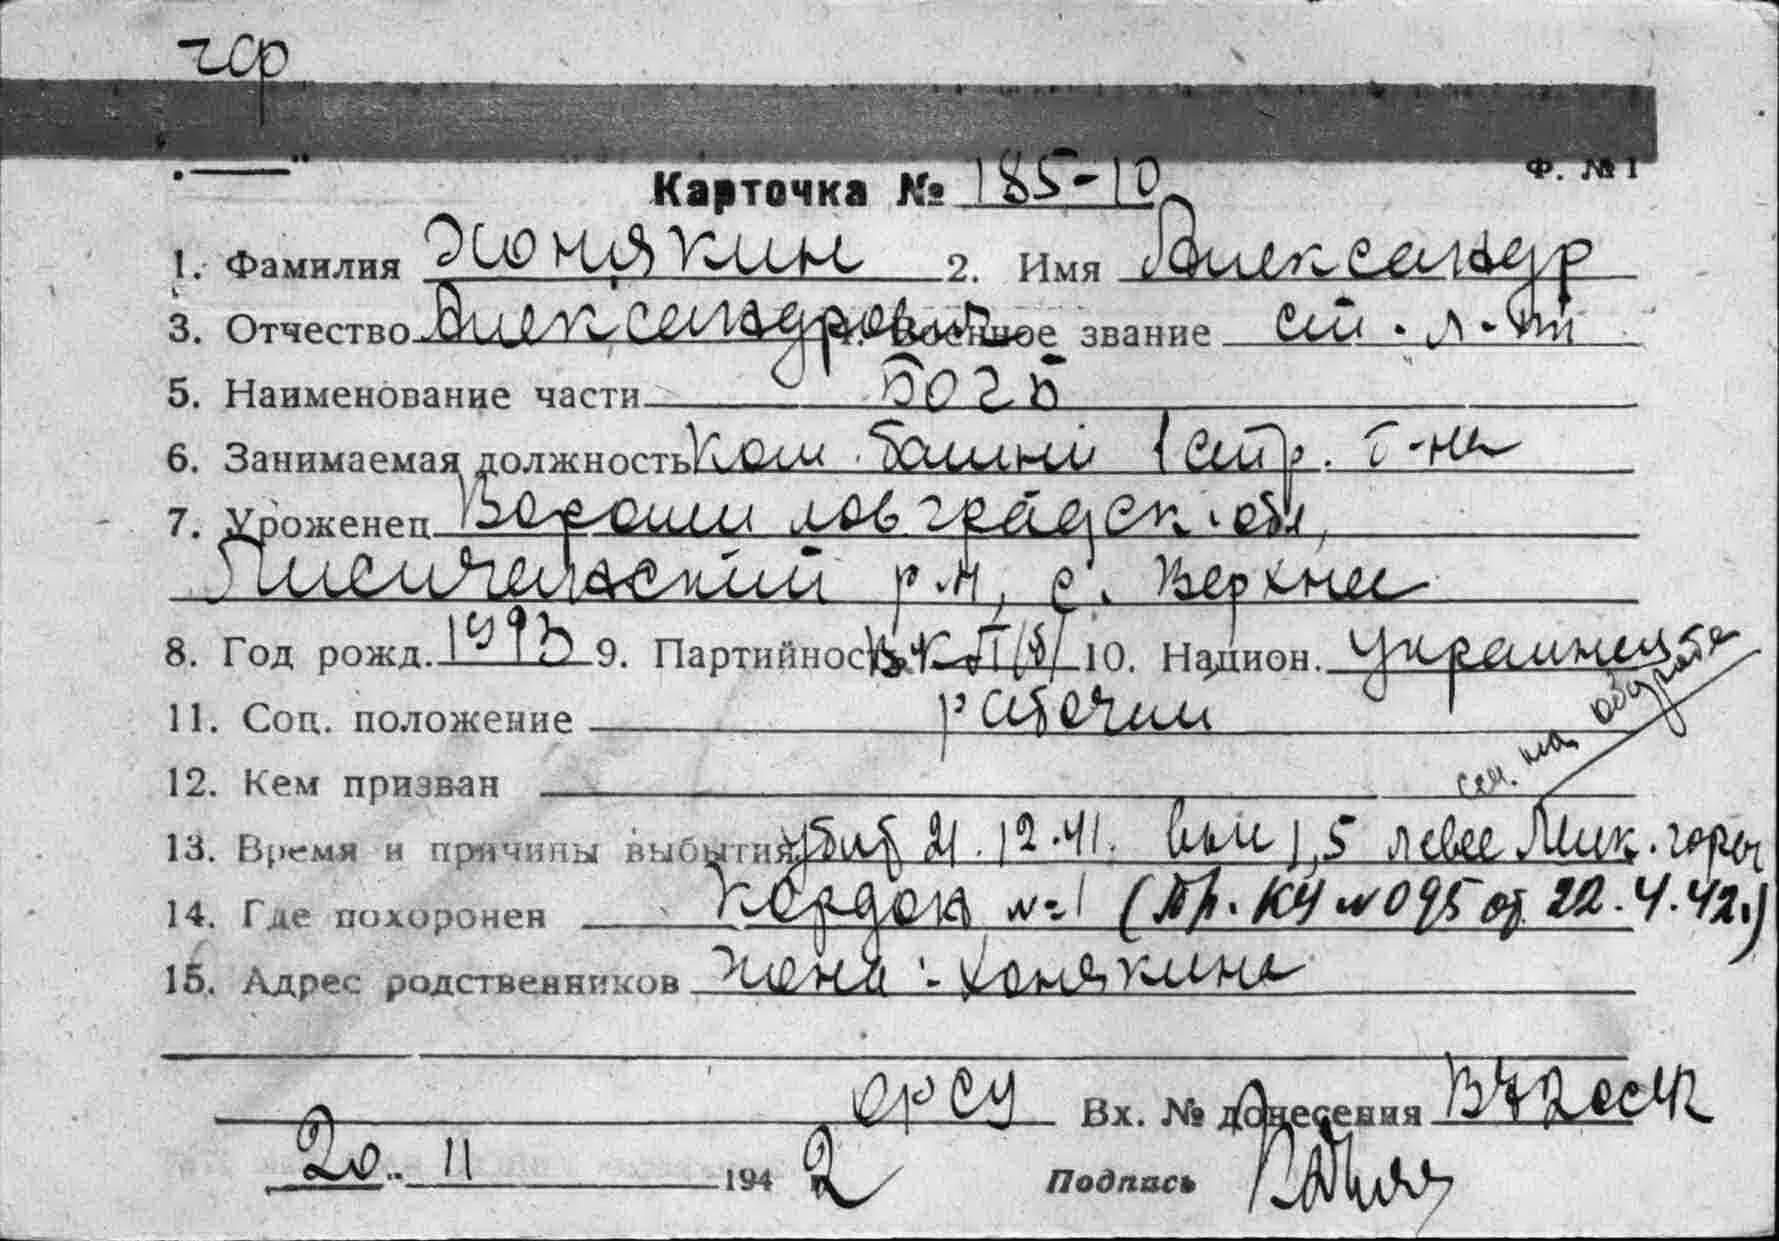 Ф. № 1
Карточка № 185-10
1. Фамилия Хонякин 2. Имя Александр
3. Отчество Александрович 4. Военное звание ст. л-т
5. Наименование части БОТБ
6. Занимаемая должность Ком. башни 1 стр. б-на
7. Уроженец Ворошиловградск. обл,
Лисичанский р-н, с. Верхнее
8. Год рожд. 1913 9. Партийность ВКП/б/ 10. Национ. украинец
11. Соц. положение рабочий
см. на обороте
12. Кем призван
13. Время и причины выбытия убит 21.12.41. выс 1,5 левее Мек. горы
14. Где похоронен Кордон № 1 (Пр. КЧ № 095 от 22.4.42.)
15. Адрес родственников жена: Хонякина
орсу Вх. № донесения
20. 11 1942 Подпись